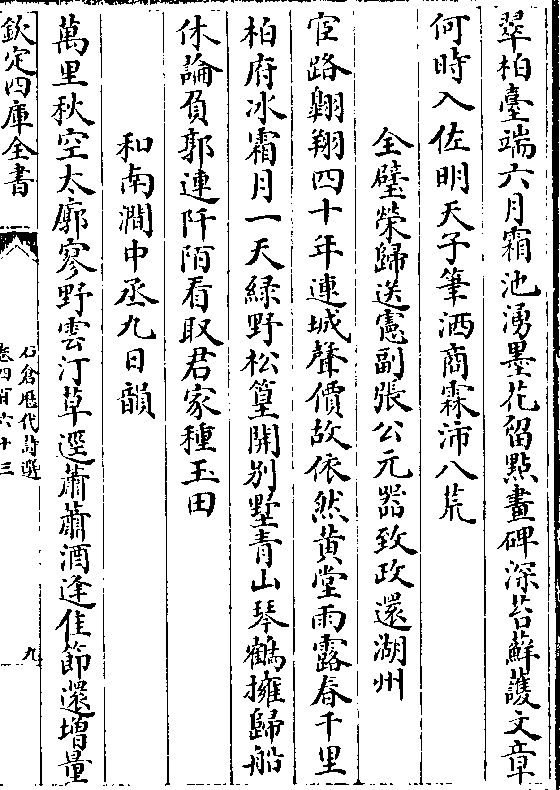 翠柏臺端六月霜池湧墨花留點畫碑深苔蘚護文章
何時入佐明天子筆洒商霖沛八荒
全璧榮歸送憲副張公元器致政還湖州
宦路翺翔四十年連城聲價故依然黄堂雨露春千里
柏府冰霜月一天緑野松篁開别墅青山琴鶴擁歸船
休論負郭連阡陌看取君家種玉田
和南澗中丞九日韻
萬里秋空太廓寥野雲汀草逕蕭蕭酒逢佳節還増量
欽定四庫全書
石倉歴代詩選
卷四百六十三
九